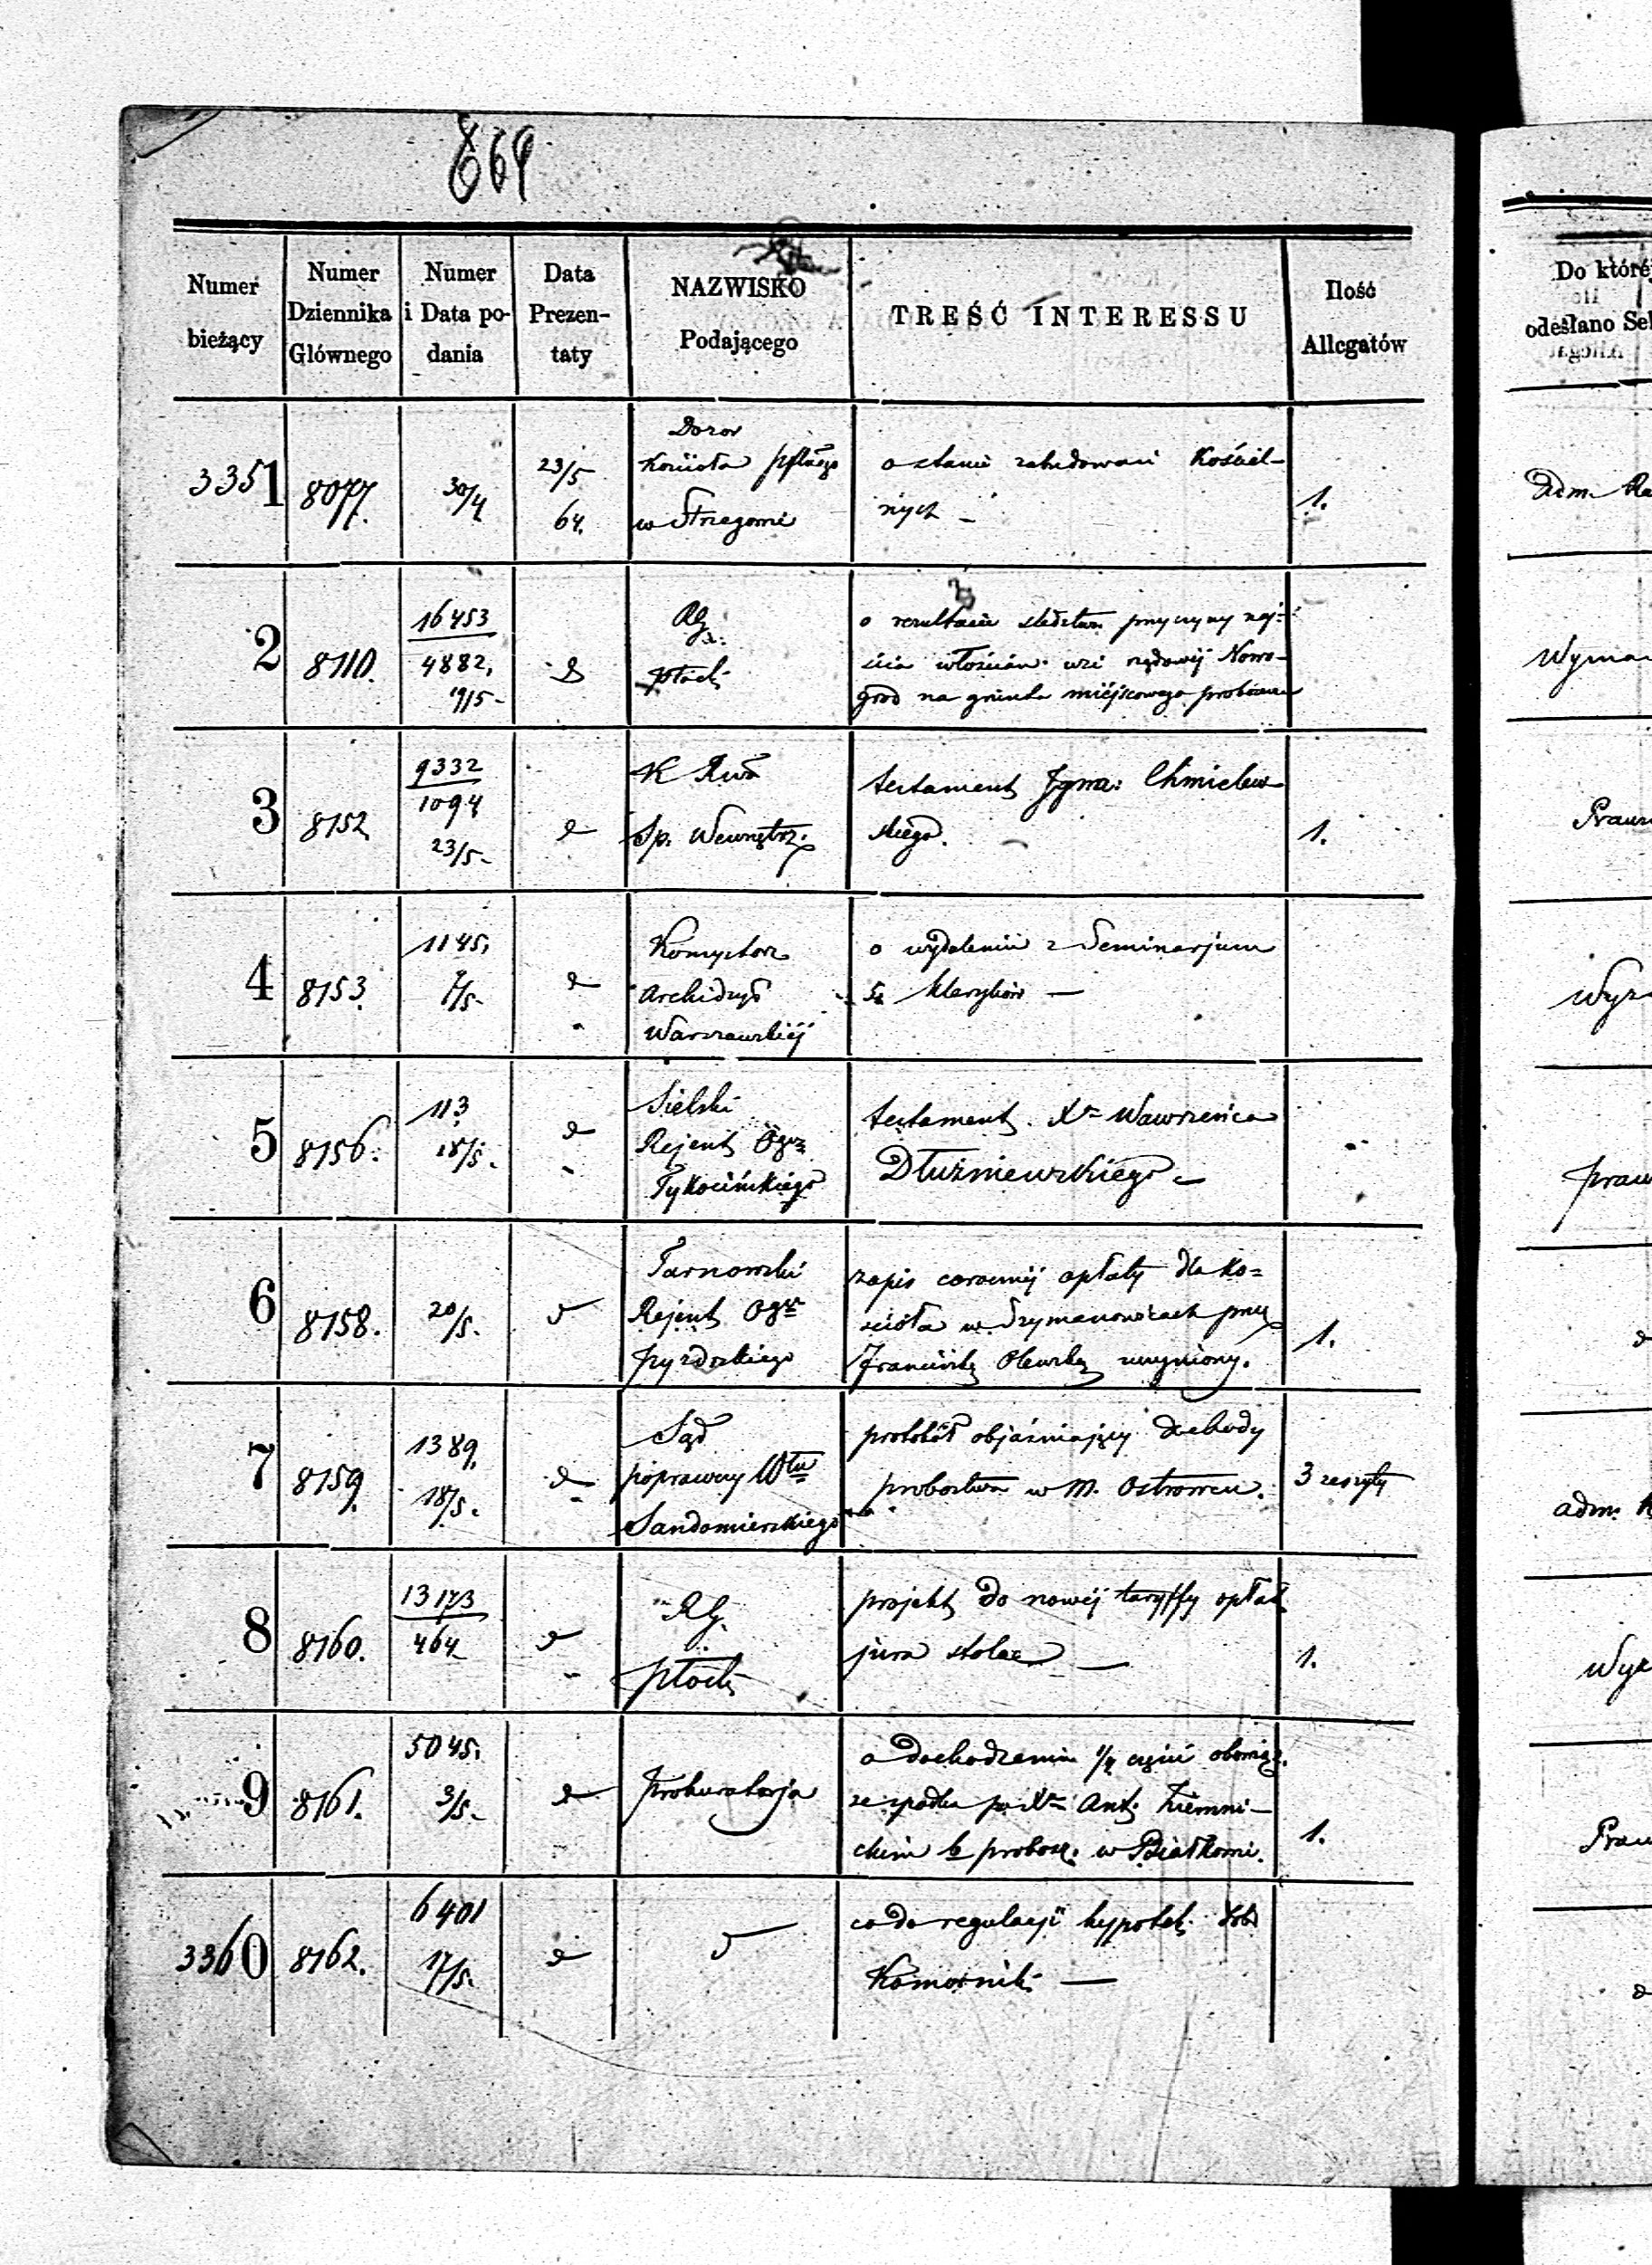 869
Numer bieżący
Numer Dziennika Głównego
Numer i Data podania
Data Prezentaty
NAZWISKO Podającego
TREŚĆ INTERESSU
Ilość Allegatów
3351 8077. 30/4 23/5 64.
Dozor
Kościoła
w Strzegomi
o stanie zabudowań Kościel-
nych –
1.
2 8110. 16453 4882, 19/5-
RG
Płock
o rezultacie śledztwa przyczyny naj-
ścia włościan wsi rządowéj Nowo-
grod na grunta miéjscowego probostwa
3 8152 9332 1094 23/5-
K Rząd
Sp. Wewnętrz.
testament Igna: Chmielew-
skiego.
1.
4 8153. 1145, 7/5-
Konsystorz
Archidyec
Warszawskiéj
o wydaleniu z Seminarjum
Kleryków —
5 8156. 113 18/5.
Sielski
Rejent Ogu
Tykocińskiego
testament Xa Wawrzeńca
Dłużniewskiego –
6 8158. 20/5.
Tarnowski
Rejent Ogu
Pyzdrskiego
zapis corocznéj opłaty dla Ko=
ścioła w Szymanowicach przez
Franciszkę uczyniony.
1.
7 8159. 1389, 18/5.
Sąd
poprawczy Włu
Sandomierskiego
protokół objaśniający dochody
probostwa w M. Ostrowcu.
3 zeszyty
8 8160. 13173 464
RG.
Płock
projekt do nowéj taryffy opłat
jura stolae —
1.
9 8161. 5045. 3/5-
Prokuratorja
o dochodzeniu 1/4 części obowiąz.
ze spadku po Xu Ant. Ziemni-
ckim b probosz. w
1.
3360 8162. 6401 17/5.
co do regulacji hypotek dóbr
Komornik —
Do któréj
odesłano Sek